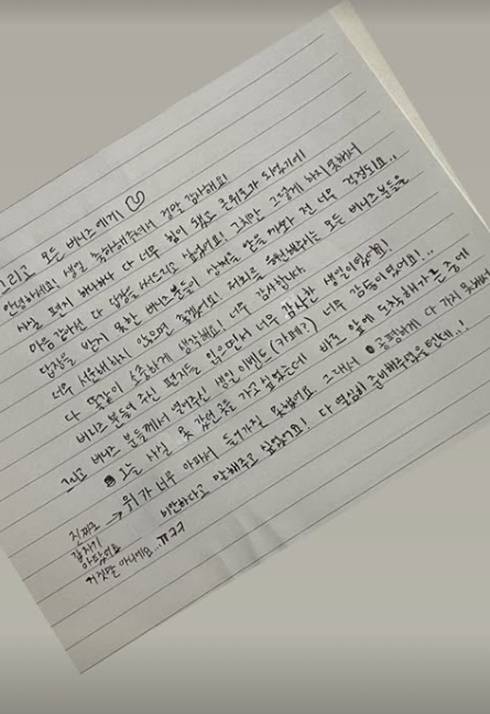 그리고 모든 버니즈에게! ♡
안녕하세요! 생일 축하해주셔서 정말 감사해요!
사실 편지 하나하나 다 너무 힘이 됐고 큰 위로가 되었기에!
마음같아선 다 답장을 써드리고 싶었어요! 그치만 그렇게 하지 못해서
답장을 받지 못한 버니즈분들이 상처를 받을까봐 전 너무 걱정되요..
너무 서운해하지 않으면 좋겠어요! 저희를 응원해주는 모든 버니즈분들을
다 똑같이 소중하게 생각해요! 너무 감사합니다.
버니즈 분들이 주신 편지들을 읽으면서 너무 감사한 생일이었어요!
그리고 버니즈 분들께서 열어주신 생일 이벤트(카페?) 너무 감동이었어요!..
오늘 사실 못 갔던 곳을 가고 싶었는데 바로 앞에 도착해가는 중에
위가 너무 아파서 들어가질 못했어요. 그래서 공평하게 다 가지 못해서
미안하다고 말해주고 싶었어요! 다 열심히 준비해주셨을텐데..!
진짜로 →
갑자기
아팠어요
거짓말 아니에요...ㅠㅋㅋ